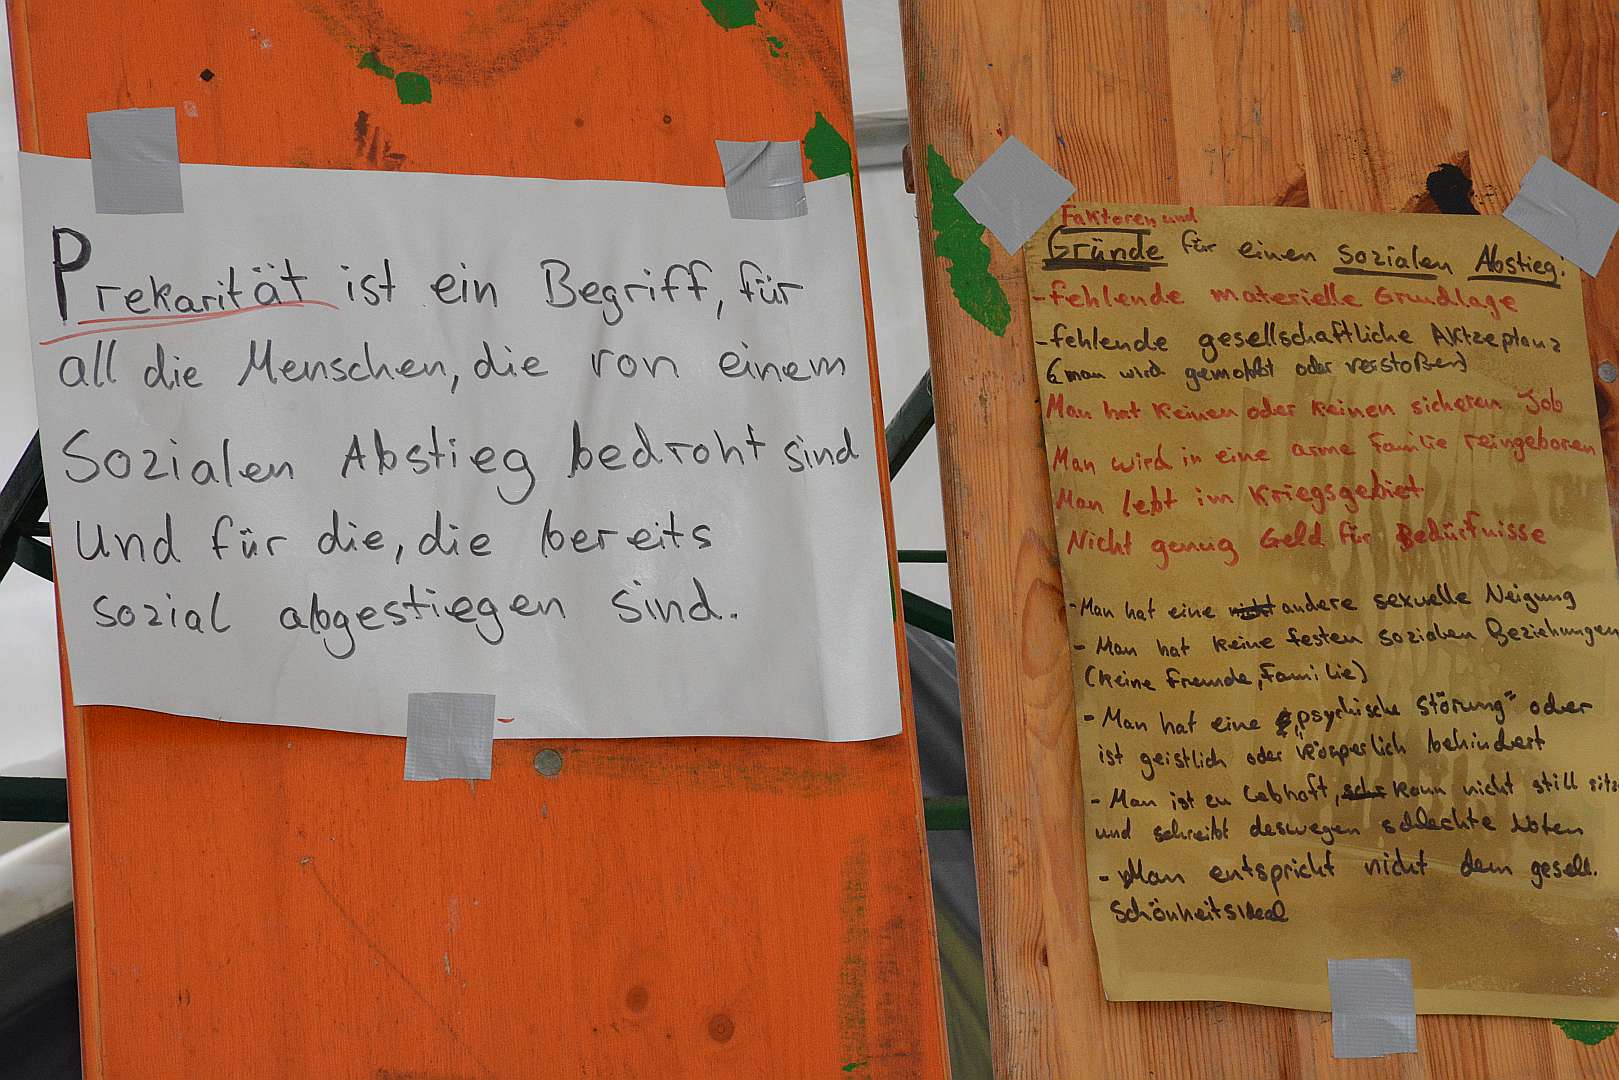 Prekarität ist ein Begriff, für
all die Menschen, die von einem
Sozialen Abstieg bedroht sind
Und für die, die bereits
sozial abgestiegen sind.
Faktoren und
Gründe für einen Sozialen Abstieg:
-fehlende materielle Grundlage
-fehlende gesellschaftliche Aktzeptanz
(man wird gemobbt oder verstoßen)
Man hat keinen oder keinen sicheren Job
Man wird in eine arme Familie reingeboren
Man lebt im Kriegsgebiet
Nicht genug Geld für Bedürfnisse
-Man hat eine andere sexuelle Neigung
- Man hat keine festen sozialen Beziehungen
(keine Freunde, Familie)
- Man hat eine "psychische Störung" oder
ist geistlich oder körperlich behindert
- Man ist zu lebhaft, kann nicht still sitz
und schreibt deswegen schlechte Noten
- Man entspricht nicht dem gesell.
Schönheitsideal